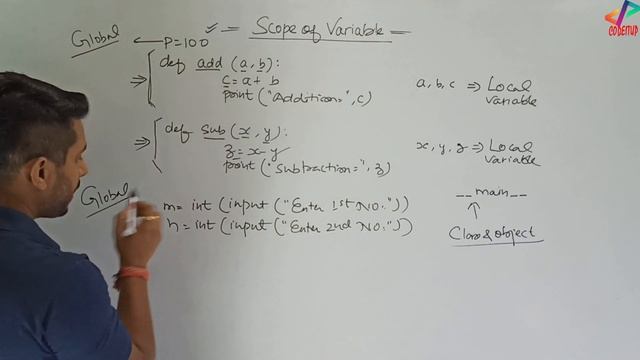 Scope of Variable
Global ← P=100
def add (a, b):
c = a + b
print("Addition=", c)
a, b, c ⇒ Local Variable
def sub (x, y):
z = x - y
print("Subtraction=", z)
x, y, z ⇒ Local Variable
Global
m = int (input ("Enter 1st No."))
n = int (input ("Enter 2nd No."))
__main__
↑
Class & object
CODEITUP